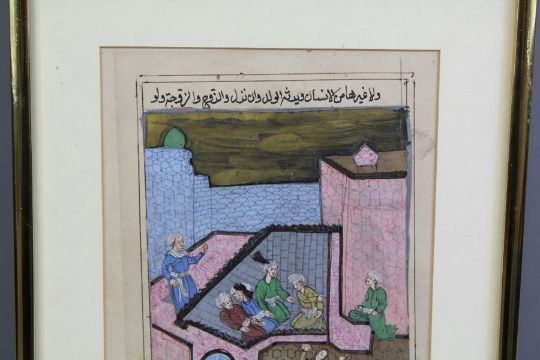 ولا فيرها من الانسان ويدثه الولد وان نزل والزوج والزوجة ولو